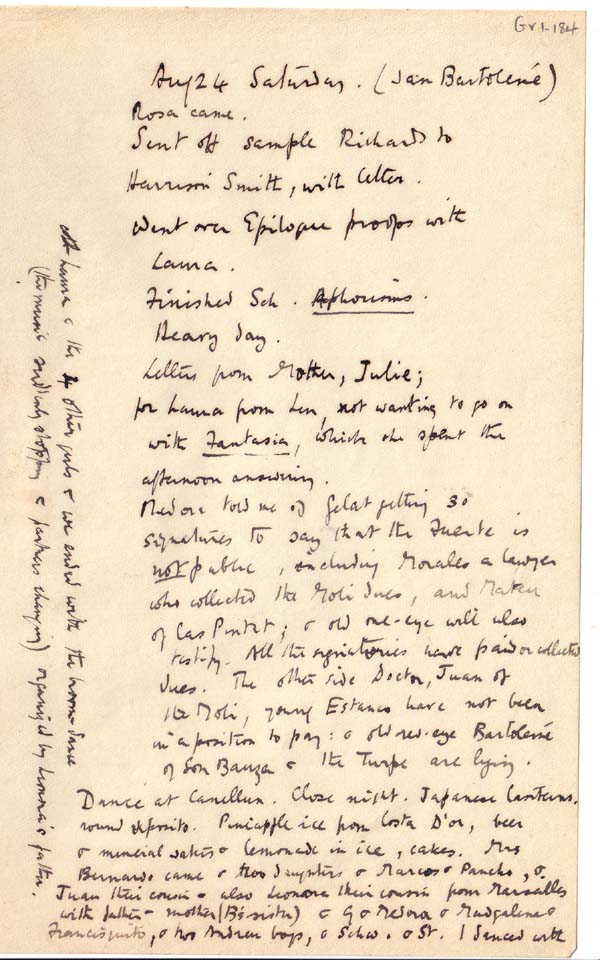 GV1-184
Aug 24 Saturday. (San Bartolemé)
Rosa came.
Sent off sample Richards to
Harrison Smith, with letter.
Went over Epilogue proofs with
Laura.
Finished Sch. Aphorisms.
Heavy day.
Letters from Mother, Julie;
for Laura from Len, not wanting to go on
with Fantasia, which she spent the
afternoon answering.
Medora told me of Gelat getting 30
signatures to say that the Fuente is
not public, including Morales a lawyer
who collected the Moli dues, and Mateu
of Cas Pintat; & old one-eye will also
testify. All the signatories have paid or collected
dues. The other side Doctor, Juan of
the Moli, young Estanco have not been
in a position to pay: & old red-eye Bartolemé
of Son Bauza & the Turpe are lying.
Dance at Canellun. Close night. Japanese lanterns.
round deposito. Pineapple ice from Costa D'or, beer
& mineral waters & lemonade in ice, cakes. Mrs
Bernardo came & two daughters & Marcos & Pancho, &
Juan their cousin & also Leonora their cousin from Marseilles
with father & mother (B's sister) & G & Medora & Magdalena &
Francisquito, & two Andreu boys, & Schw. & St. I danced with
Laura & the 4 other girls & we ended with the broom-dance
(the music suddenly stopping & partners changing) organized by Leonora's father.